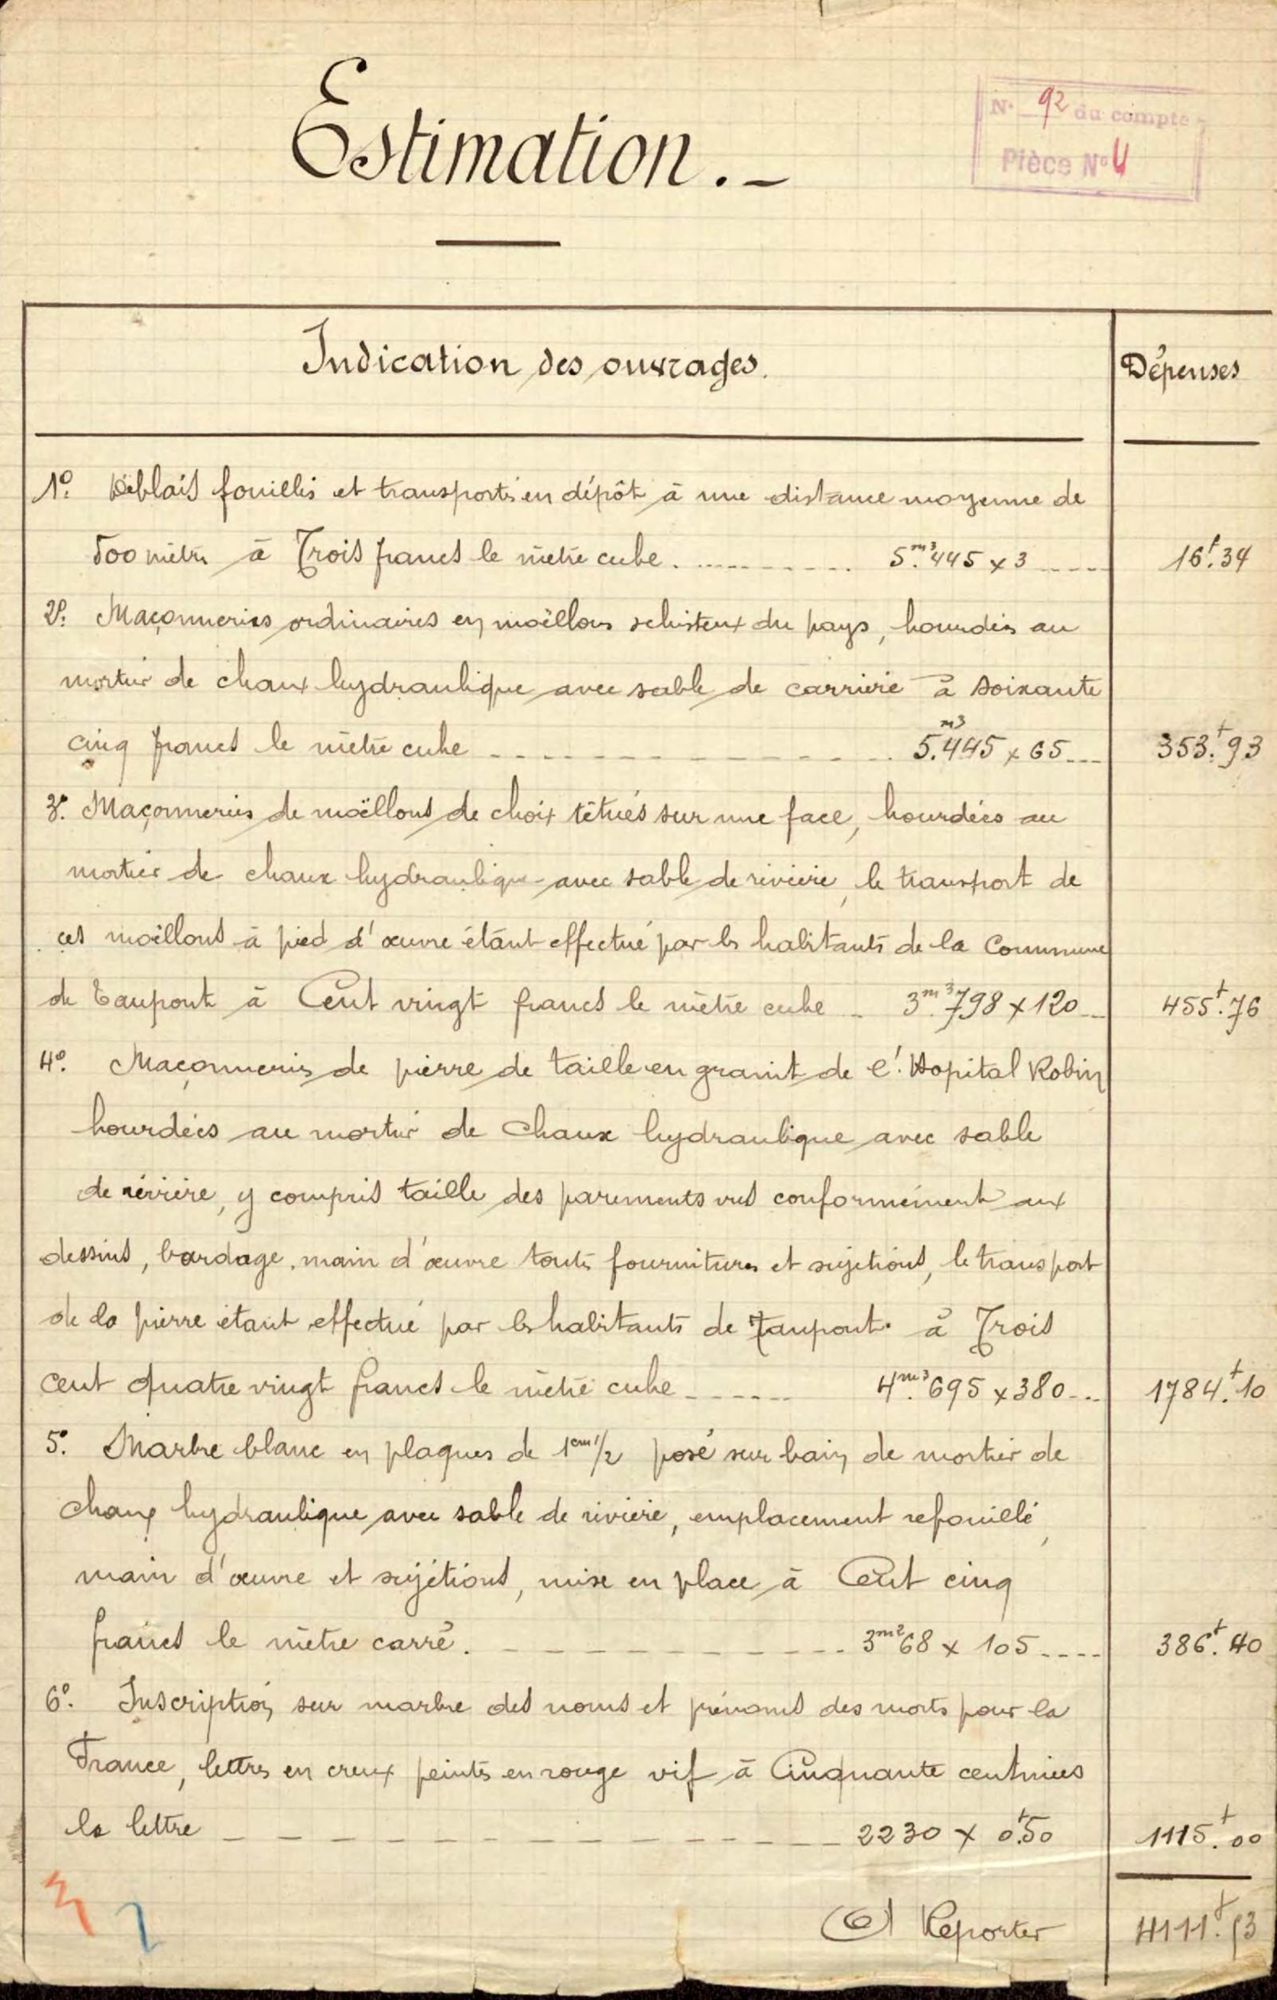 Estimation.-
N° 92 du compte
Pièce N° 4
Indication des ouvrages.
Dépenses
1° Déblais fouillés et transportés en dépôt à une distance moyenne de
500 mètres à Trois francs le mètre cube. 5.m3445 x 3 16f.34
2° Maçonneries ordinaires en moëllons schisteux du pays, hourdées au
mortier de chaux hydraulique avec sable de carrière à soixante
cinq francs le mètre cube 5.m3445 x 65 353f.93
3° Maçonneries de moëllons de choix têtués sur une face, hourdées au
mortier de chaux hydraulique avec sable de rivière, le transport de
ces moëllons à pied d'œuvre étant effectué par les habitants de la Commune
de Taupont à Cent vingt francs le mètre cube 3.m3798 x 120 455f.76
4° Maçonneries de pierre de taille en granit de l'Hopital Robin
hourdées au mortier de chaux hydraulique avec sable
de rivière, y compris taille des parements vus conformément aux
dessins, bardage, main d'œuvre toutes fournitures et sujétions, le transport
de la pierre étant effectué par les habitants de Taupont à Trois
cent quatre vingt francs le mètre cube 4.m3695 x 380 1784f.10
5° Marbre blanc en plaques de 1cm1/2 posé sur bain de mortier de
chaux hydraulique avec sable de rivière, emplacement refouillé,
main d'œuvre et sujétions, mise en place à Cent cinq
francs le mètre carré. 3m268 x 105 386f.40
6° Inscription sur marbre des noms et prénoms des morts pour la
France, lettres en creux peintes en rouge vif à Cinquante centimes
la lettre 2230 x 0f.50 1115f.00
A Reporter 4111f.53